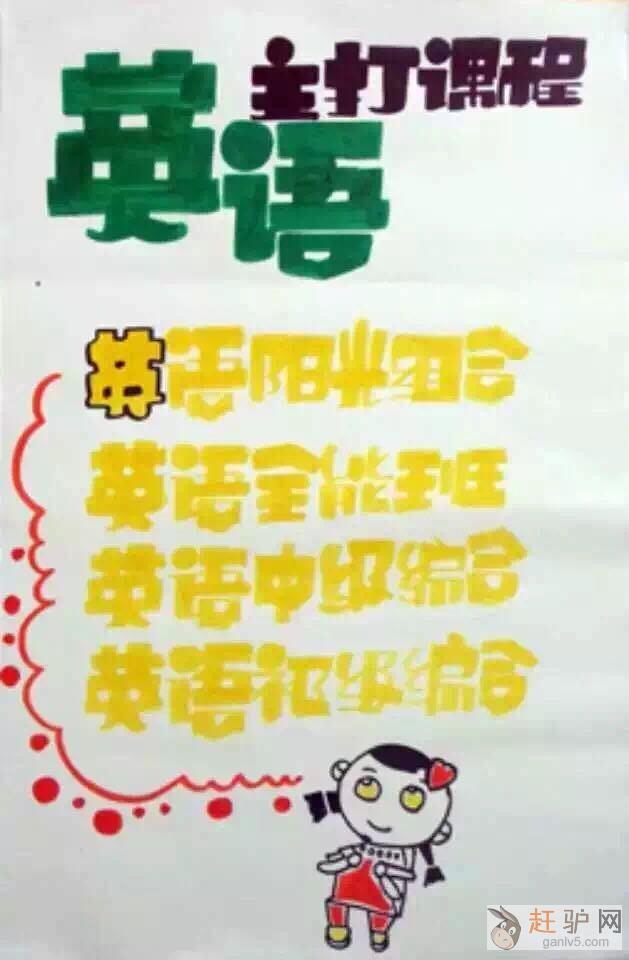 主打课程
英语
英语阳光组合
英语全能班
英语中级编合
英语初级编合
赶驴网
ganlv5.com